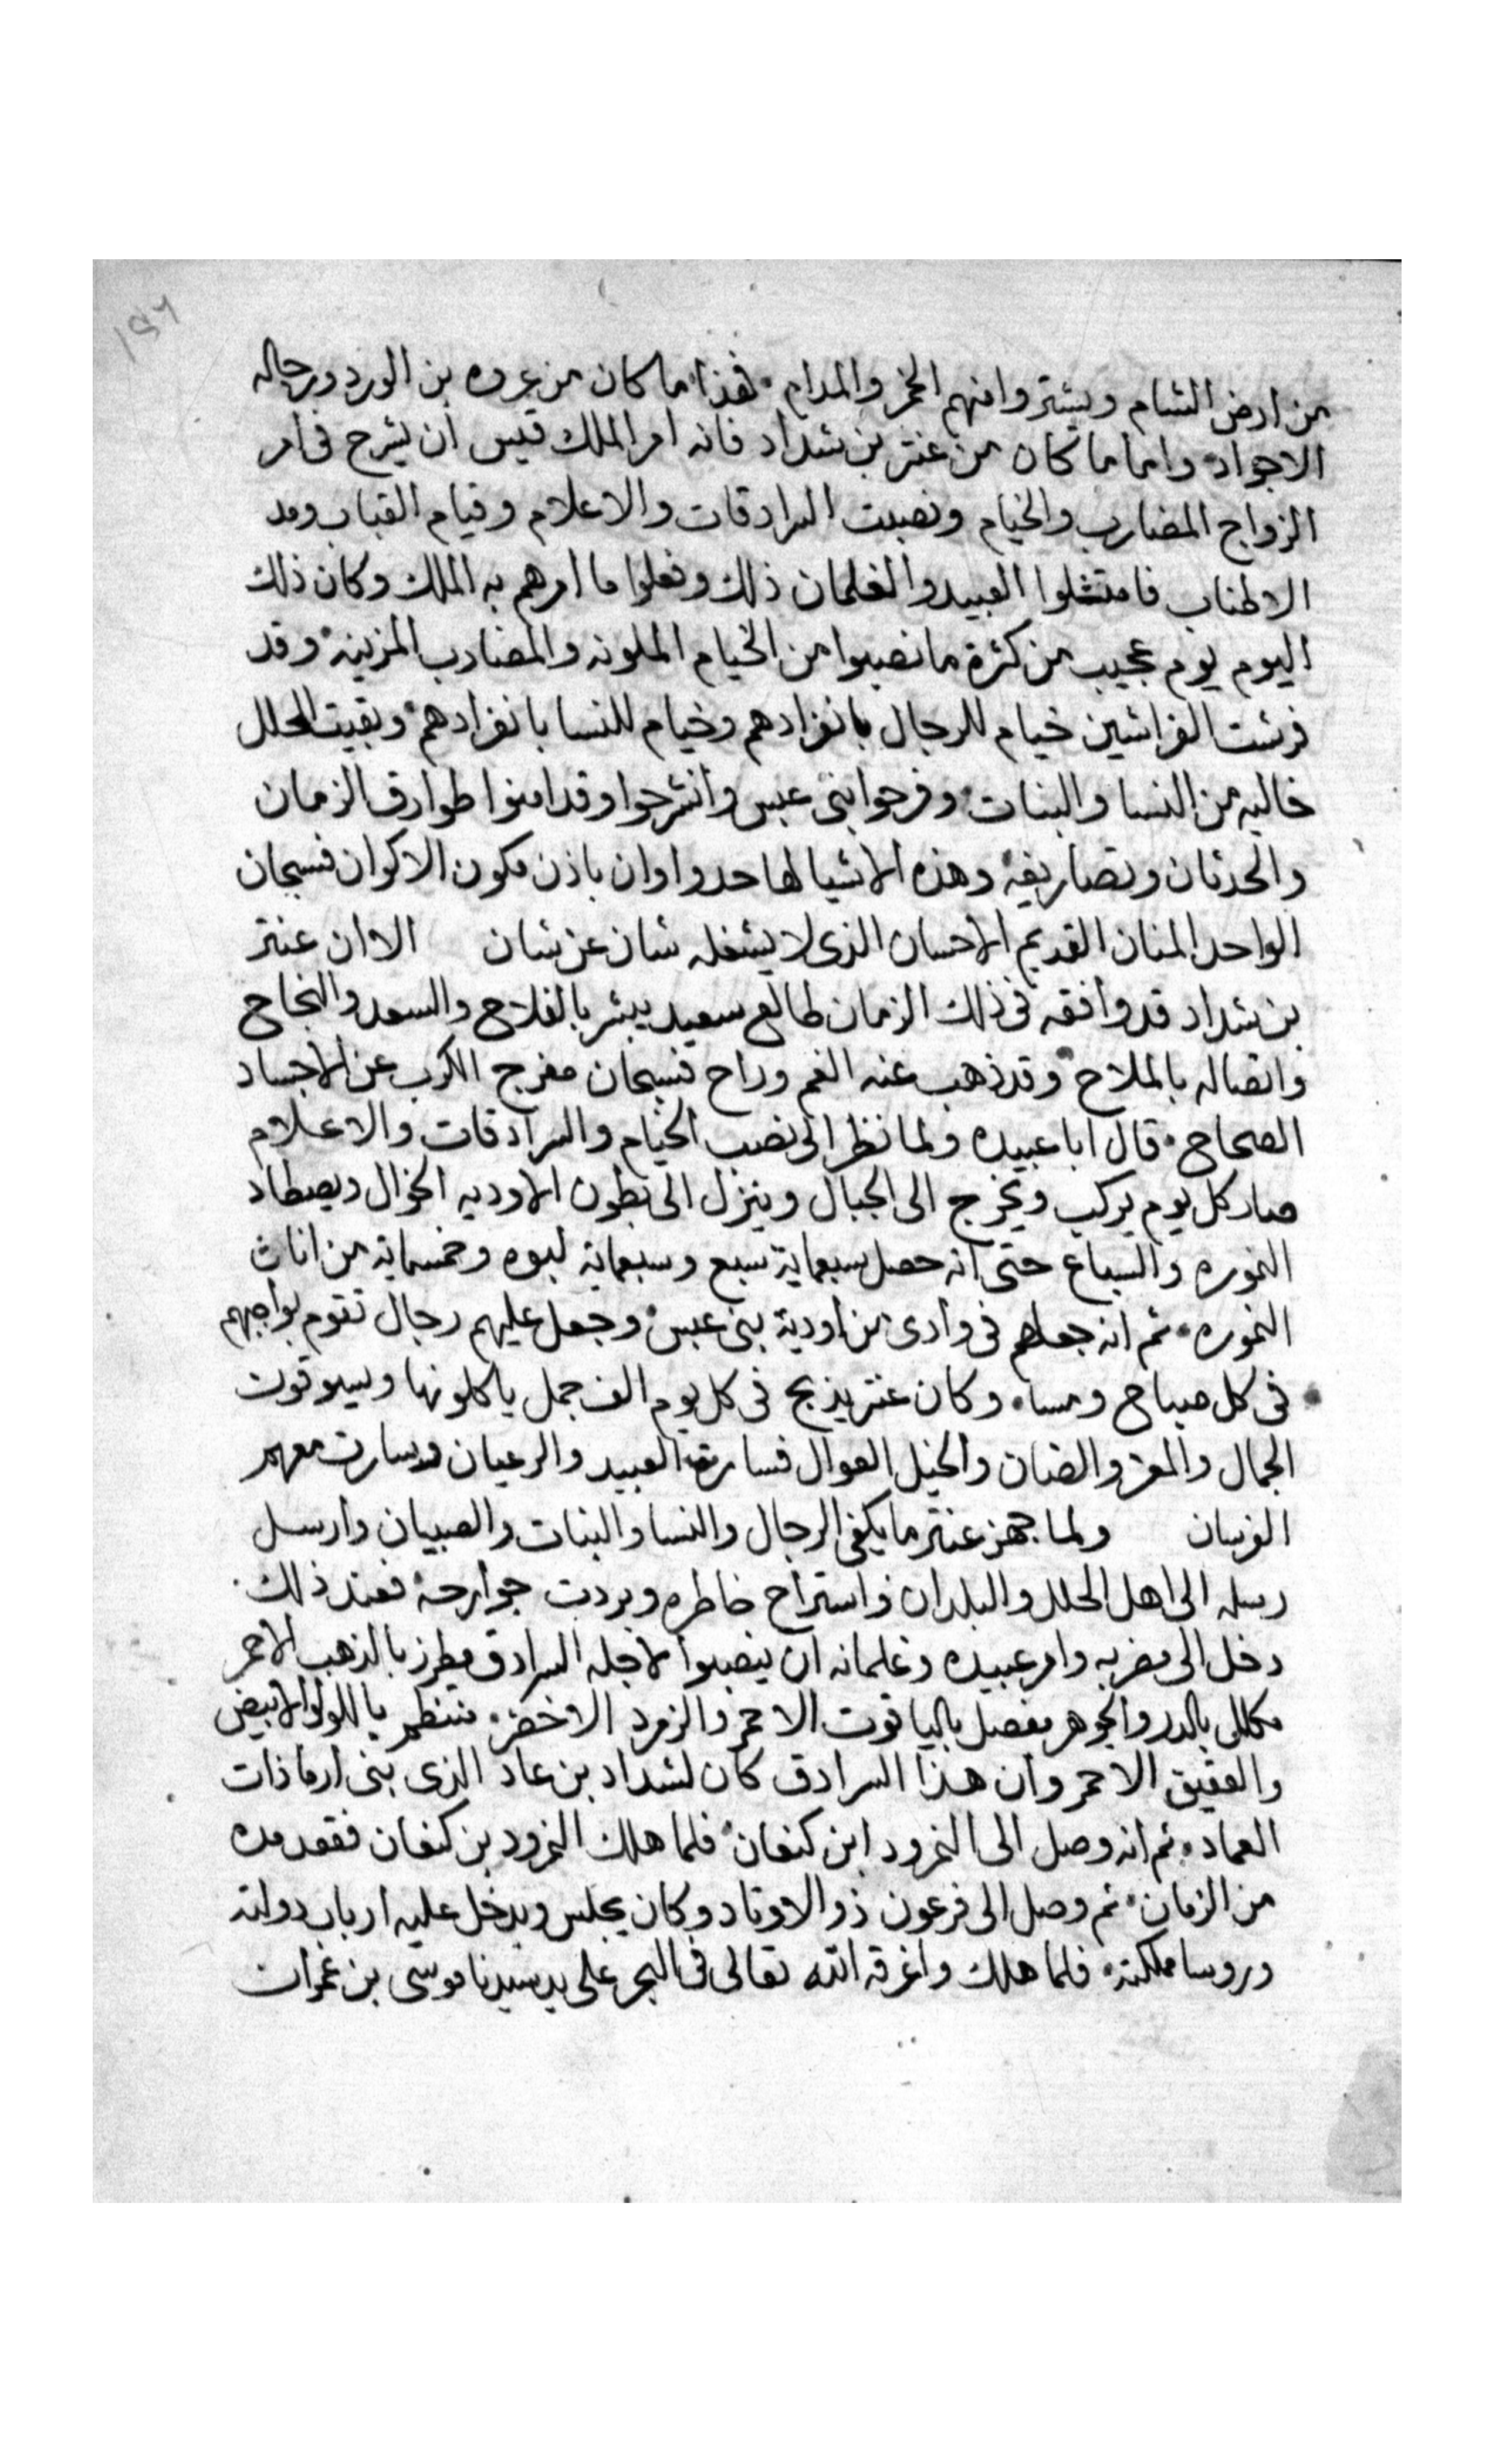 من ارض الشام ويشتروا منهم الخمر والمدام فهذا ما كان من عروه بن الورد ورجاله
الاجواد واما ما كان من عنتر بن شداد فانه امر الملك قيس ان يشرح في امر
الزواج المضارب والخيام ونصبت السرادقات والاعلام وقيام القباب ومد
الاطناب فامتثلوا العبيد والغلمان ذلك وفعلوا ما امرهم به الملك وكان ذلك
اليوم يوم عجيب من كثرة ما نصبوا من الخيام الملونه والمضارب المزينه وقد
فرشت الفراشين خيام للرجال بانفرادهم وخيام للنسا بانفرادهم وبقيت الحلل
خاليه من النسا والبنات وفرحوا بني عبس وانشرحوا وقد امنوا طوارق الزمان
والحدثان وتصاريفه وهذه الاشيا لها حد واوان باذن مكون الاكوان فسبحان
الواحد المنان القديم الاحسان الذي لا يشغله شان عن شان الا وان عنتر
بن شداد قد وافقه في ذلك الزمان طالع سعيد يبشر بالفلاح والسعد والنجاح
واتصاله بالملاح وقد ذهب عنه الغم وراح فسبحان مفرج الكرب عن الاجساد
الصحاح قال ابا عبيده ولما نظر الى نصب الخيام والسرادقات والاعلام
صار كل يوم يركب ويخرج الى الجبال وينزل الى بطون الاوديه الخوال ويصطاد
النموره والسباع حتى انه حصل سبعماية سبع وسبعماية لبوه وخمسماية من اناث
النموره ثم انه جعلهم في وادي من اودية بني عبس وجعل عليهم رجال تقوم بواجبهم
في كل صباح ومساء وكان عنتر يذبح في كل يوم الف جمل ياكلونها ويسوقون
الجمال والمعز والضان والخيل العوال فسارت العبيد والرعيان وسارت معهم
الفرسان ولما جهز عنتر ما يكفي الرجال والنسا والبنات والصبيان وارسل
رسله الى اهل الحلل والبلدان واستراح خاطره وبردت جوارحه فعند ذلك
دخل الى مضربه وامر عبيده وغلمانه ان ينصبوا لاجله السرادق مطرز بالذهب الاحمر
مكلل بالدر والجوهر مفصل بالياقوت الاحمر والزمرد الاخضر منتظم باللولو الابيض
والعقيق الاحمر وان هذا السرادق كان لشداد بن عاد الذي بنى ارما ذات
العماد ثم انه وصل الى النمرود ابن كنعان فلما هلك النمرود بن كنعان فقعد مده
من الزمان ثم وصل الى فرعون ذو الاوتاد وكان يجلس ويدخل عليه ارباب دولته
وروسا مملكته فلما هلك واغرقه الله تعالى في البحر على يد سيدنا موسى بن عمران